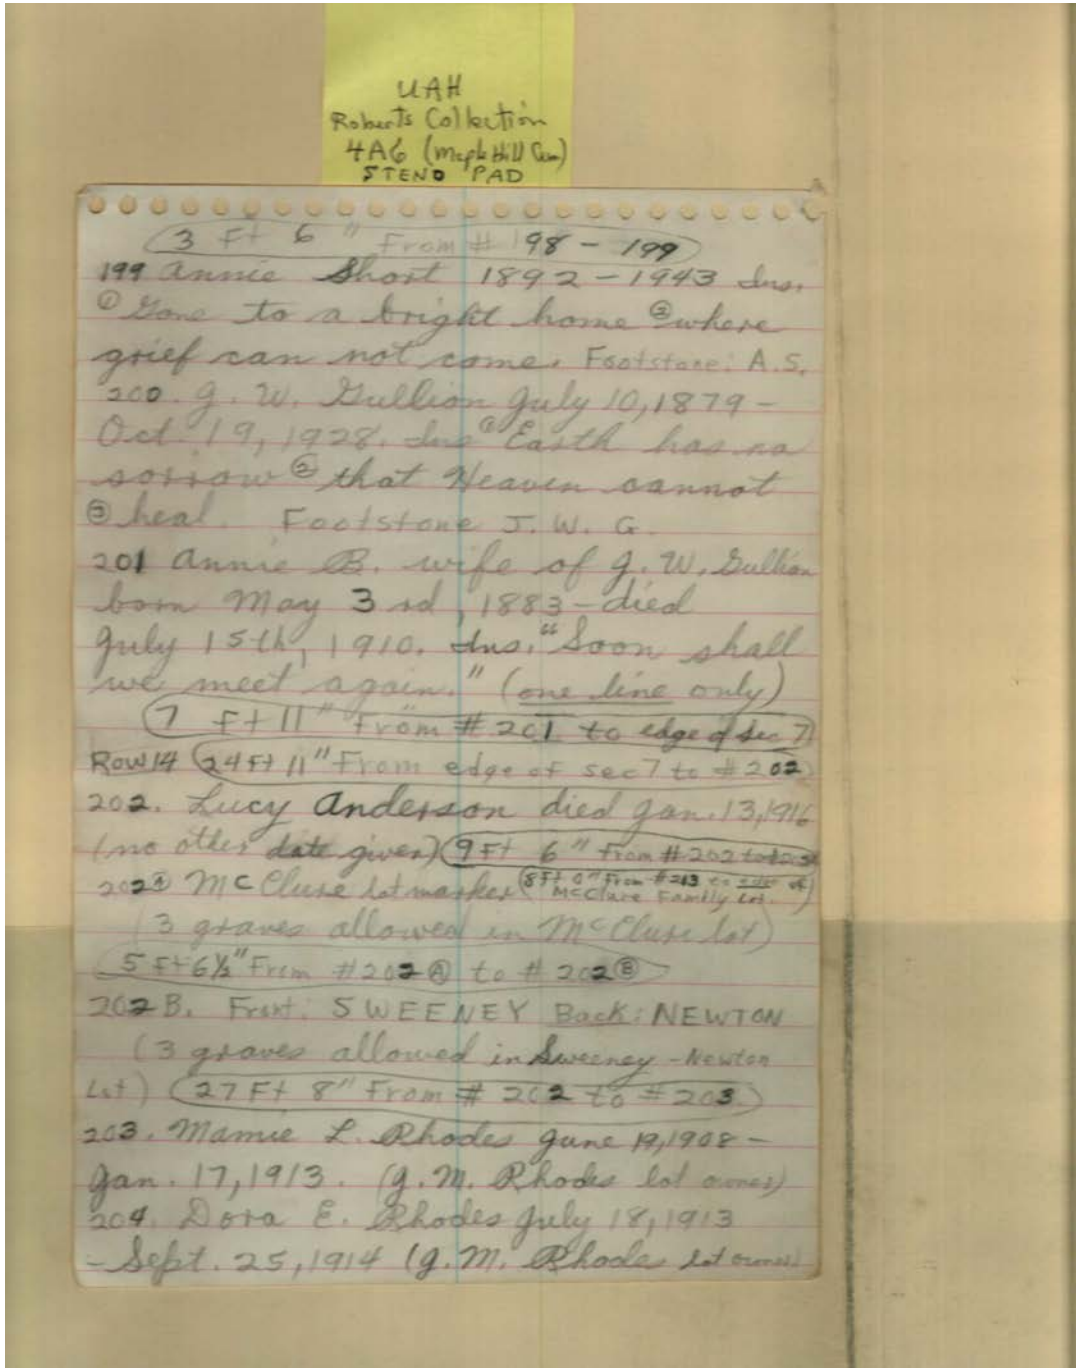 UAH
Roberts Collection
4A6 (Maple Hill Cem)
STENO PAD
3 Ft 6" From # 198 - 199
199 Annie Short 1892 - 1943 Ins.
① Gone to a bright home ② where
grief can not come. Footstone: A.S.
200. J. W. Gullion July 10, 1879 -
Oct. 19, 1928. Ins ① Earth has no
sorrow ② that Heaven cannot
③ heal. Footstone J. W. G.
201 Annie B. wife of J. W. Gullion
born May 3rd, 1883 - died
July 15th, 1910. Ins. "Soon shall
we meet again." (one line only)
7 Ft 11" From # 201 to edge of sec 7
Row 14 24 Ft 11" From edge of sec 7 to # 202
202. Lucy Anderson died Jan. 13, 1916
(no other date given) 9 Ft 6" From # 202 to
202Ⓐ McClure lot marker (8 Ft 0" From # 213 to edge of
McClure Family Lot.)
(3 graves allowed in McClure lot)
5 Ft 6½" From # 202Ⓐ to # 202Ⓑ
202 B. Front: SWEENEY Back: NEWTON
(3 graves allowed in Sweeney - Newton
Lot) 27 Ft 8" From # 202 to # 203
203. Mamie L. Rhodes June 19, 1908 -
Jan. 17, 1913. (J. M. Rhodes lot owner)
204. Dora E. Rhodes July 18, 1913
- Sept. 25, 1914 (J. M. Rhode lot owner)